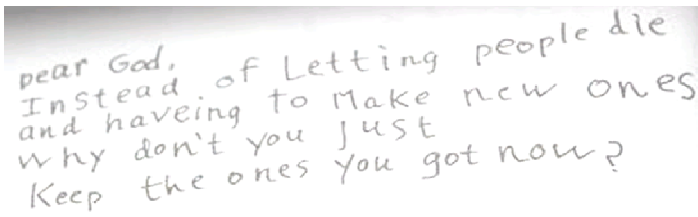 Dear God,
Instead of Letting people die
and haveing to Make new ones
why don't you Just
Keep the ones you got now?